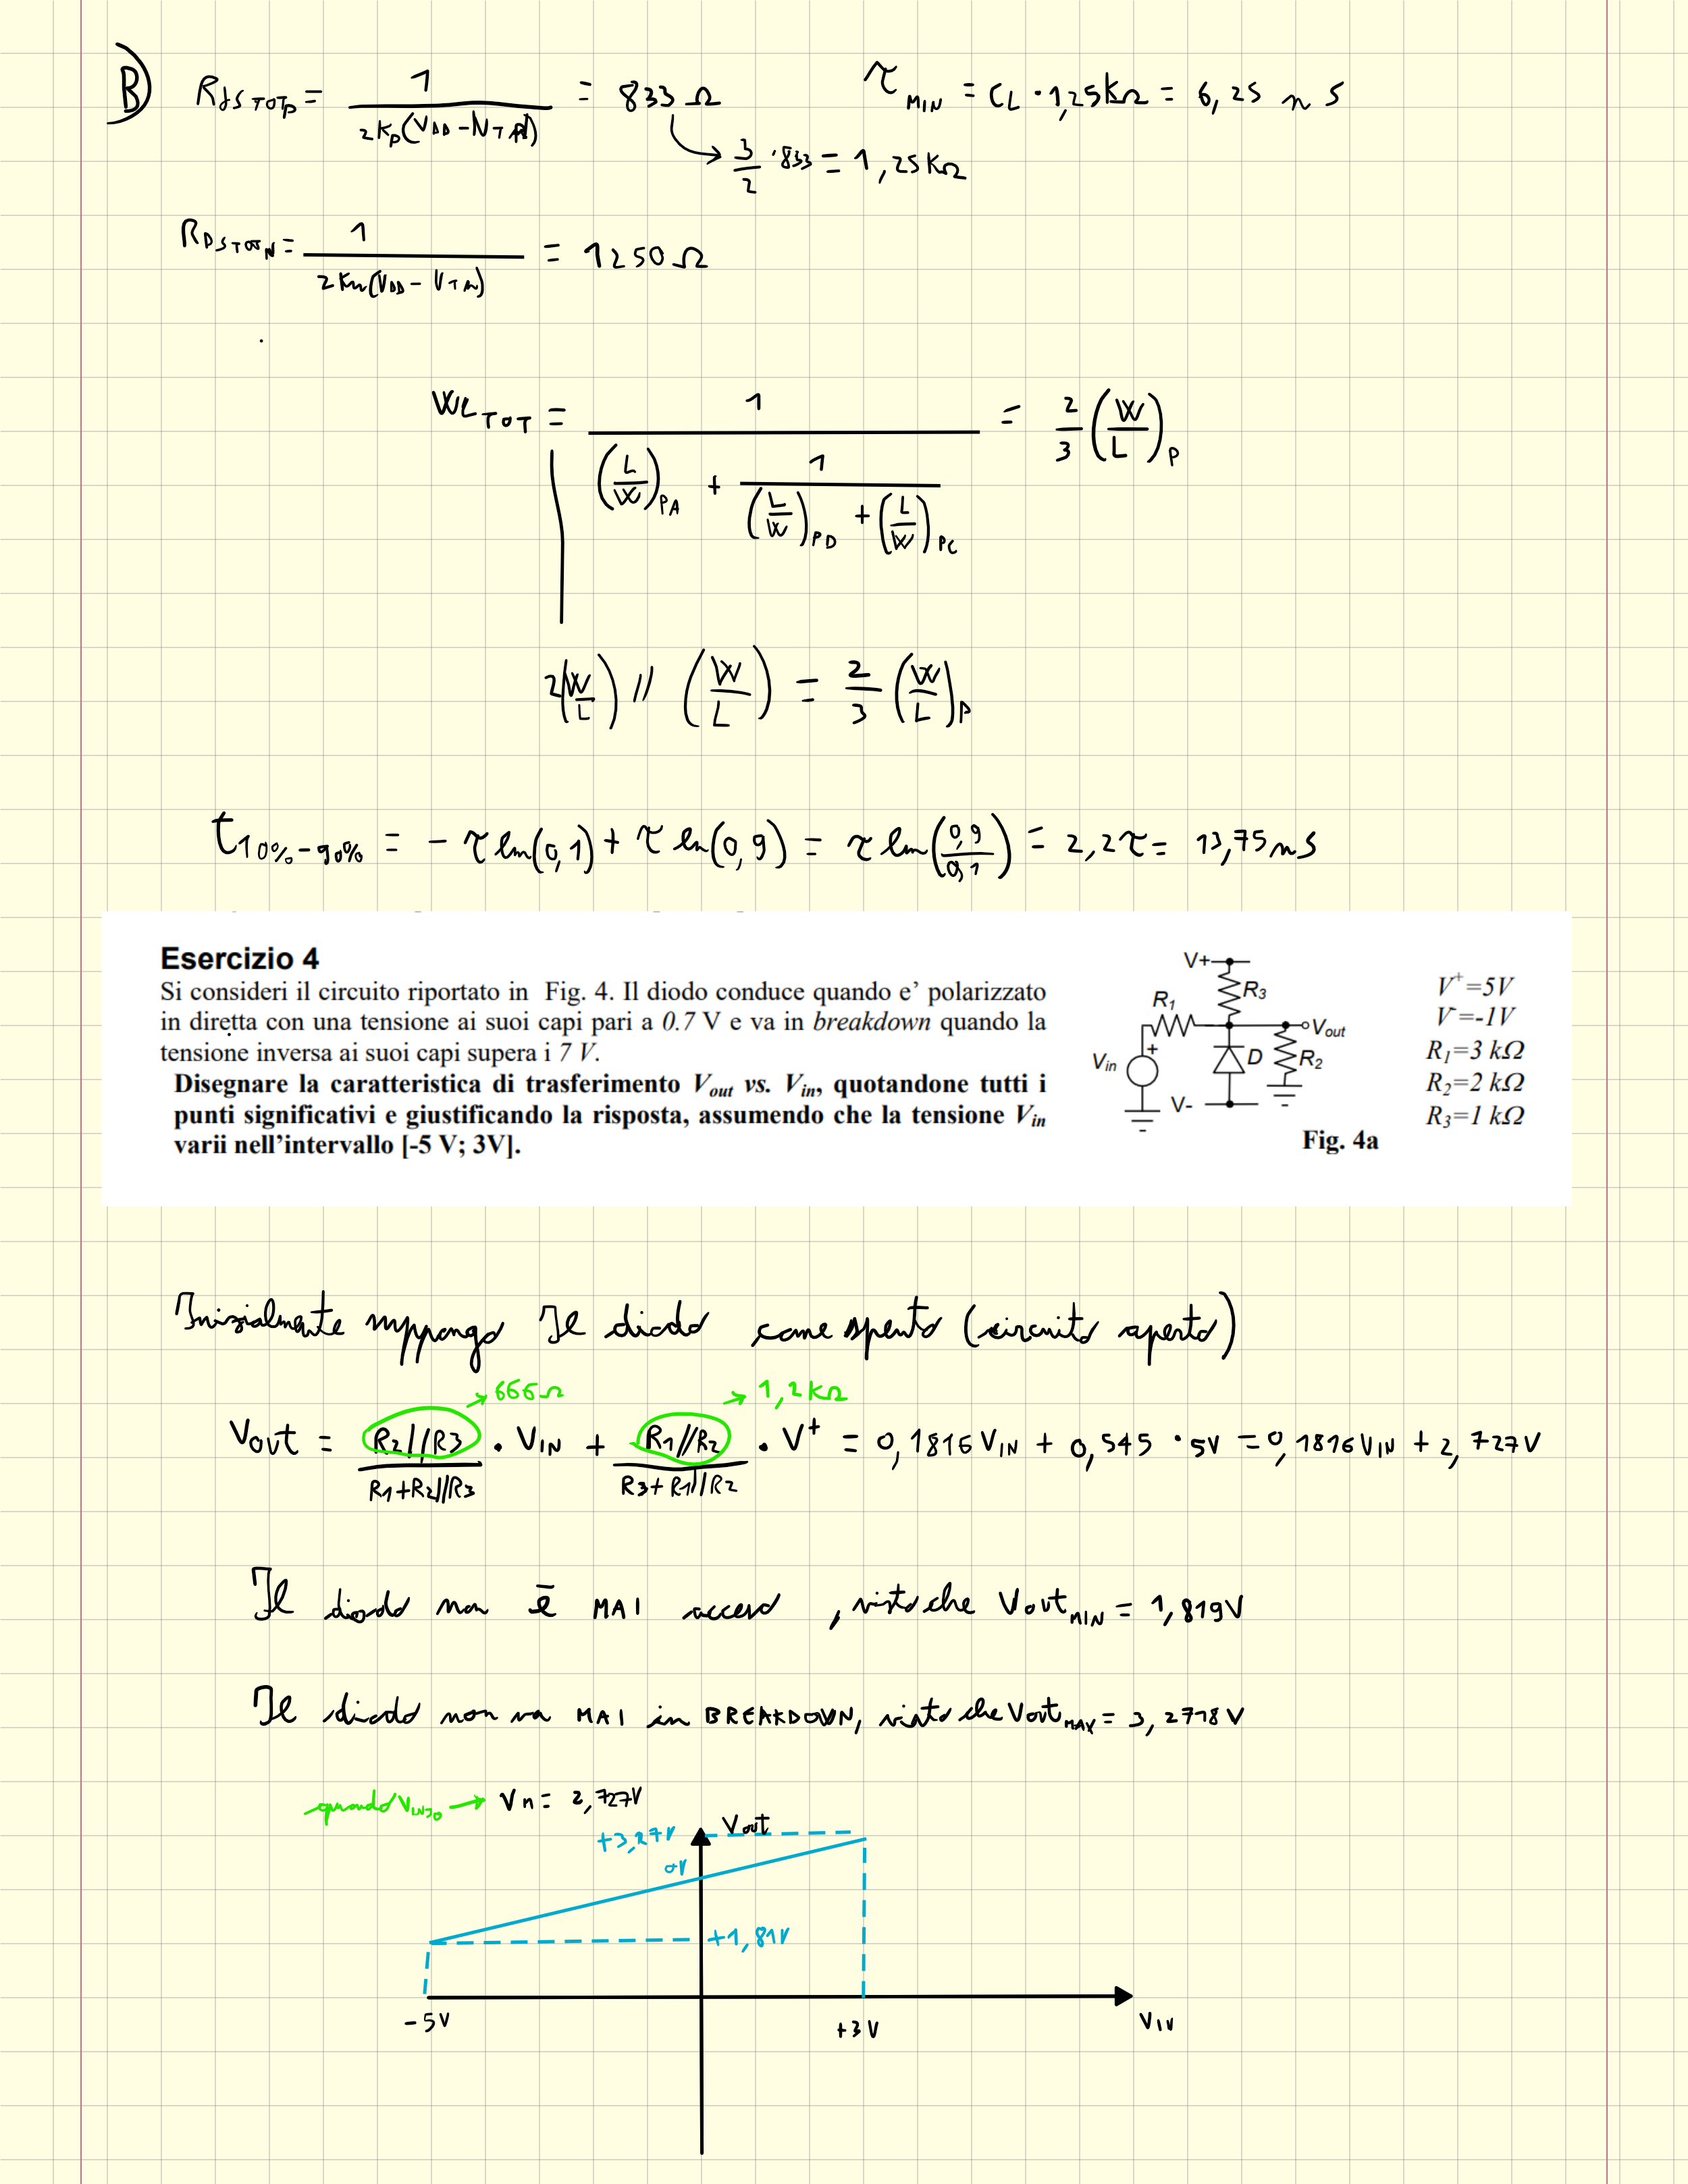 B) R_DS TOT P = 1 / 2Kp(VDD - |VTP|) = 833 Ω
τ_MIN = CL · 1,25kΩ = 6,25 nS
→ 3/2 · 833 = 1,25KΩ
R_DS TOT N = 1 / 2Kn(VDD - VTN) = 1250 Ω
WL_TOT = 1 / ((L/W)_PA + 1 / ((L/W)_PD + (L/W)_PC)) = 2/3 (W/L)_P
2(W/L) // (W/L) = 2/3 (W/L)_P
t_10%-90% = - τ ln(0,1) + τ ln(0,9) = τ ln(0,9/0,1) = 2,2τ = 13,75 nS
Esercizio 4
Si consideri il circuito riportato in Fig. 4. Il diodo conduce quando e' polarizzato
in diretta con una tensione ai suoi capi pari a 0.7 V e va in breakdown quando la
tensione inversa ai suoi capi supera i 7 V.
Disegnare la caratteristica di trasferimento Vout vs. Vin, quotandone tutti i
punti significativi e giustificando la risposta, assumendo che la tensione Vin
varii nell'intervallo [-5 V; 3V].
V+
R3
R1
Vout
+
Vin
D
R2
V-
Fig. 4a
V+=5V
V-=-1V
R1=3 kΩ
R2=2 kΩ
R3=1 kΩ
Inizialmente suppongo Il diodo come spento (circuito aperto)
→ 666Ω
→ 1,2KΩ
Vout = R2//R3 / R1+R2//R3 · VIN + R1//R2 / R3+R1//R2 · V+ = 0,1816 VIN + 0,545 · 5V = 0,1816 VIN + 2,727V
Il diodo non è MAI acceso, visto che Vout_MIN = 1,819V
Il diodo non va MAI in BREAKDOWN, visto che Vout_MAX = 3,2718 V
quando VIN=0 → Vn = 2,727V
Vout
+3,27V
0V
+1,81V
-5V
+3V
VIN